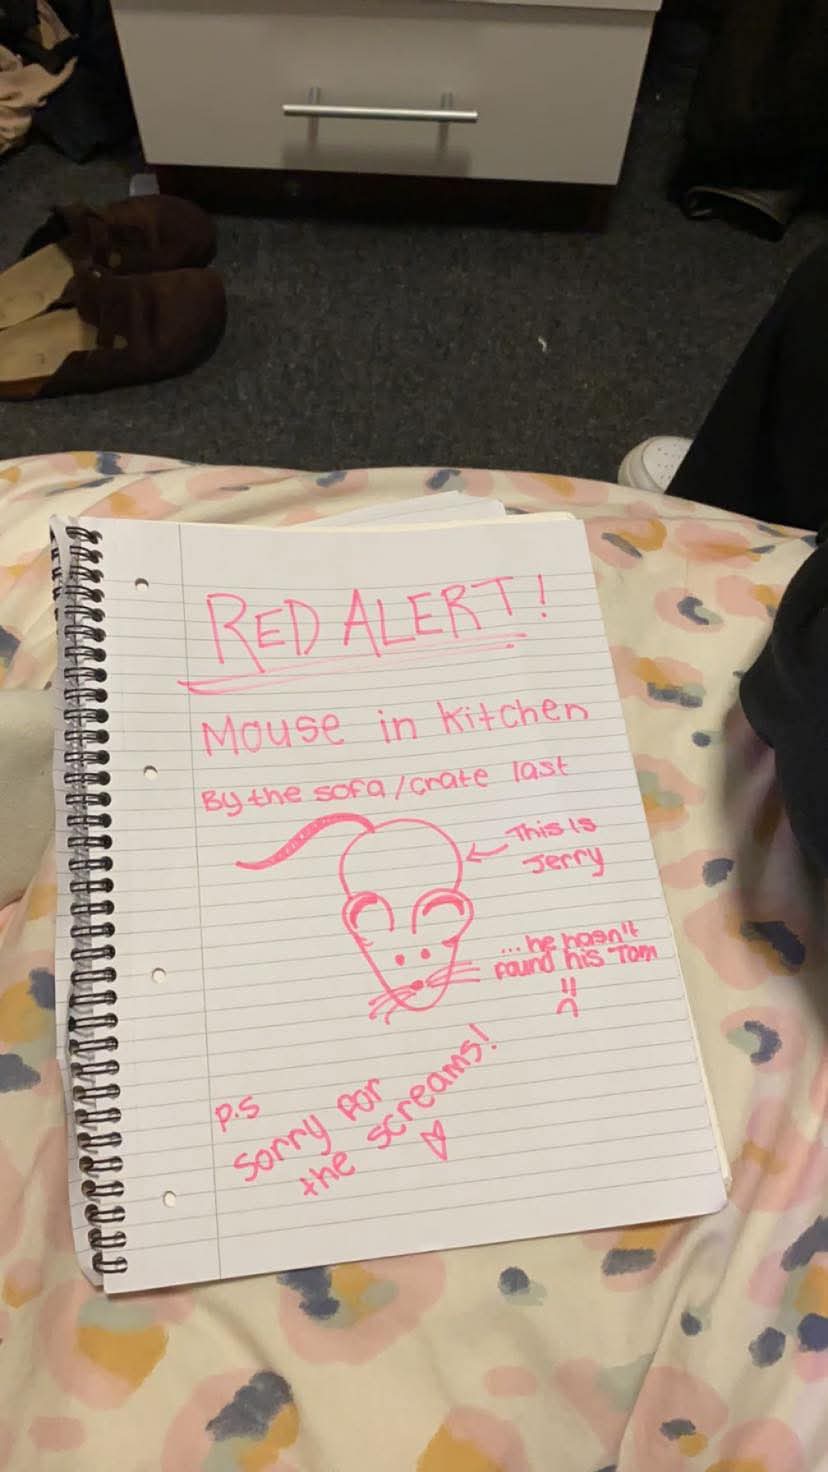 RED ALERT!
Mouse in kitchen
By the sofa/crate last
This is
Jerry
...he hasn't
found his Tom
:(
P.S
Sorry for
the screams!